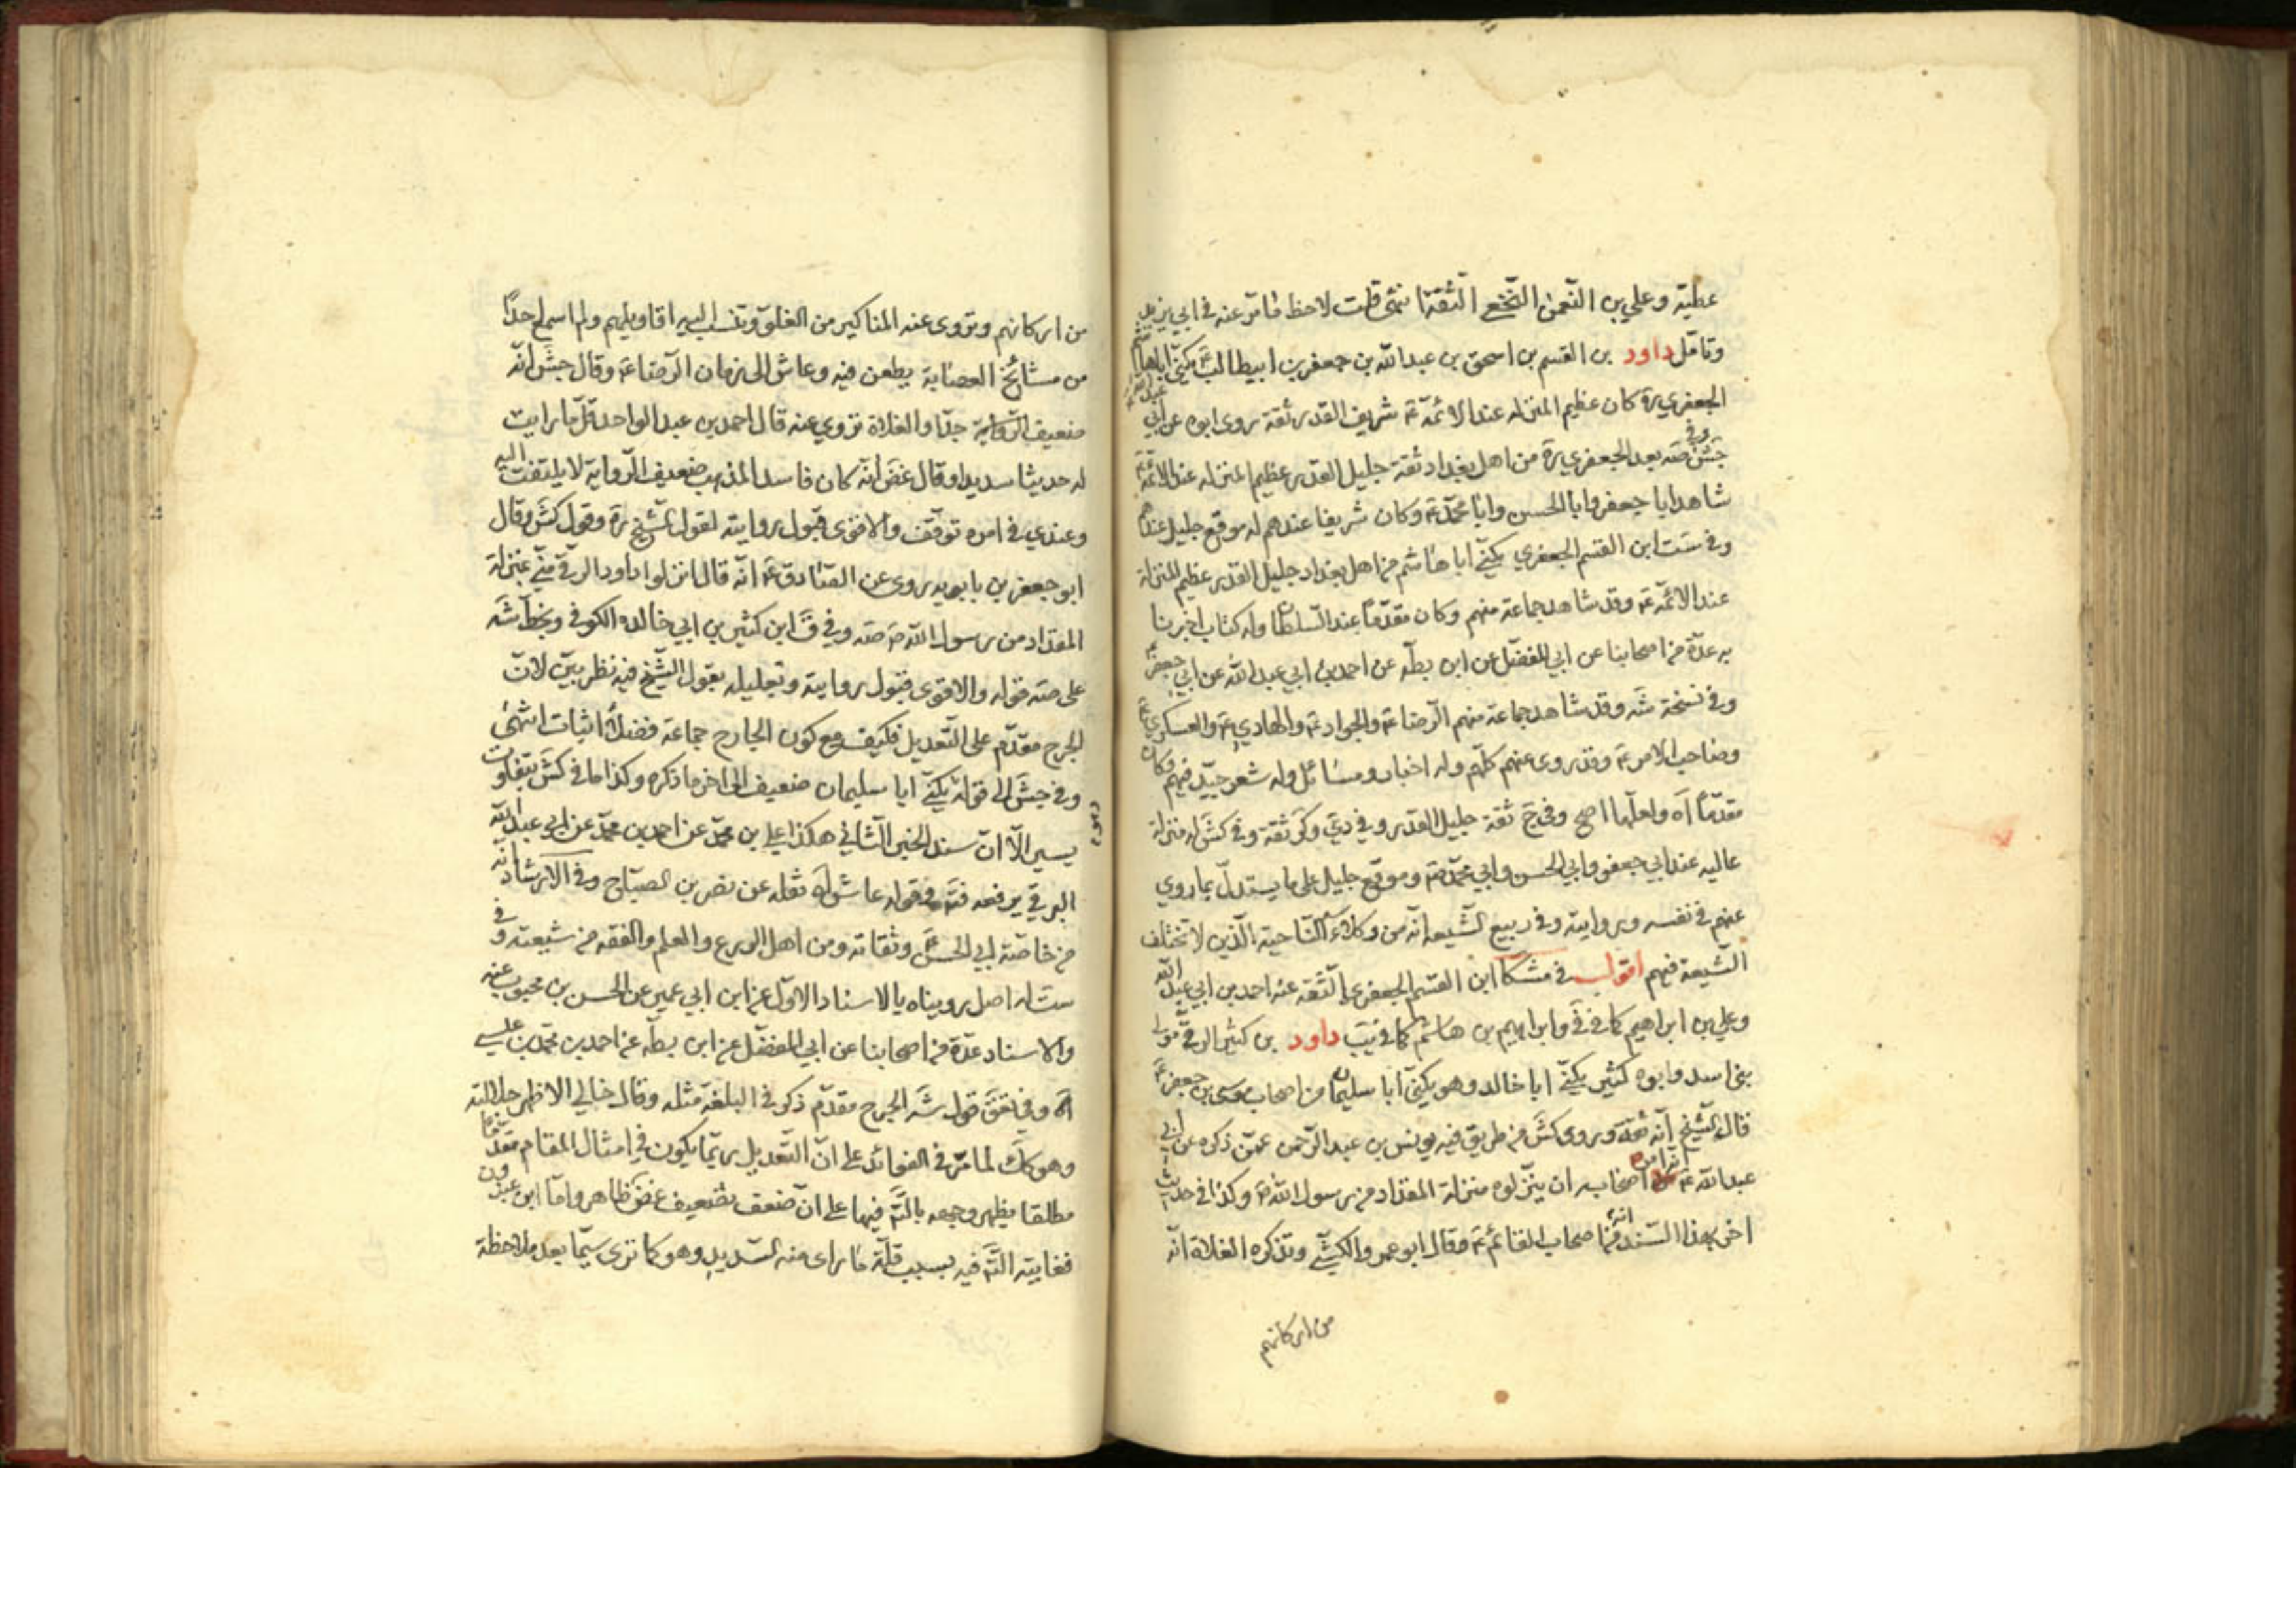 عطية وعلي بن النعمن النخعي الثقة انتهى قلت لاحظ ما مر عنه في ابي يزيد
وتامل داود بن القسم بن اسحق بن عبد الله بن جعفر بن ابيطالب يكنى اباهاشم
الجعفري ره كان عظيم المنزله عند الائمة ع شريف القدر ثقة روى ابوه عن ابي عبد الله ع
جش وفي صه بعد الجعفري ره من اهل بغداد ثقة جليل القدر عظيم المنزله عند الائمة ع
شاهد ابا جعفر وابا الحسن وابا محمد ع وكان شريفا عندهم له موقع جليل عندهم
وفي ست ابن القسم الجعفري يكنى ابا هاشم من اهل بغداد جليل القدر عظيم المنزلة
عند الائمة ع وقد شاهد جماعة منهم وكان مقدما عند السلطان وله كتاب اخبرنا
به عدة من اصحابنا عن ابي المفضل عن ابن بطه عن احمد بن ابي عبد الله عن ابي جعفر
وفي نسخة شه وقد شاهد جماعة منهم الرضا ع والجواد ع والهادي ع والعسكري ع
وصاحب الامر ع وقد روى عنهم كلهم وله اخبار ومسائل وله شعر جيد فيهم وكان
مقدما اه ولعلها اصح وفي ج ثقة جليل القدر وفي دي وكر ثقة وفي كش له منزلة
عاليه عند ابي جعفر وابي الحسن وابي محمد ع وموقع جليل على ما يستدل بما روي
عنهم في نفسه وروايته وفي ربيع الشيعه انه من وكلاء الناحية الذين لا تختلف
الشيعة فيهم اقول في مشكا ابن القسم الجعفري الثقه عنه احمد بن ابي عبد الله
وعلي بن ابراهيم كما في في وابراهيم بن هاشم كما في يب داود بن كثير الرقي مولى
بني اسد وابوه كثير يكنى ابا خالد وهو يكنى ابا سليمان من اصحاب موسى بن جعفر ع
قال الشيخ انه ثقة وروى كش من طريق فيه يونس بن عبد الرحمن عمن ذكره عن ابي
عبد الله ع انه امر اصحابه ان ينزلوه منزلة المقداد من رسول الله ص وكذا في حديث
اخر بهذا السند انه من اصحاب القائم ع وقال ابو عمرو الكشي وتذكره الغلاة انه
من اركانهم
من اركانهم وتروى عنه المناكير من الغلو وتنسب اليه اقاويلهم ولم اسمع احدا
من مشائخ العصابة يطعن فيه وعاش الى زمان الرضا ع وقال جش انه
ضعيف الرواية جدا والغلاة تروي عنه قال احمد بن عبد الواحد قل ما رايت
له حديثا سديدا وقال غض انه كان فاسد المذهب ضعيف الرواية لا يلتفت اليه
وعندي في امره توقف والاقوى قبول روايته لقول الشيخ ره وقول كش وقال
ابو جعفر بن بابويه روى عن الصادق ع انه قال انزلوا داود الرقي مني بمنزلة
المقداد من رسول الله ص صه وفي ق ابن كثير بن ابي خالده الكوفي وبخط شه
على صه قوله والاقوى قبول روايته وتعليله بقول الشيخ فيه نظر بين لان
الجرح مقدم على التعديل فكيف مع كون الجارح جماعة فضلاء اثبات انتهى
وفي جش الى قوله يكنى ابا سليمان ضعيف الى اخر ما ذكره وكذا ما في كش بتفاوت
يسير الا ان سند الخبر الثاني هكذا علي بن محمد عن احمد بن محمد عن ابي عبد الله
البرقي يرفعه فته وقوله عاش اه نقله عن نصر بن الصباح وفي الارشاد انه
من خاصة ابي الحسن ع وثقاته ومن اهل الورع والعلم والفقه من شيعته وفي
ست له اصل رويناه بالاسناد الاول عن ابن ابي عمير عن الحسن بن محبوب عنه
والاسناد عدة من اصحابنا عن ابي المفضل عن ابن بطه عن احمد بن محمد بن عيسى
اه وفي تعق قول شه الجرح مقدم ذكر في البلغة مثله وقال خالي الاظهر جلالته
وهو كك لما مر في الفوائد على ان التعديل ربما يكون في امثال المقام مقدما
مطلقا يظهر وجهه بالتم فيها على ان ضعف تضعيف غض ظاهر واما ابن عبدون
فغايته التم فيه بسبب قلة ما راى منه السديد وهو كما ترى سيما بعد ملاحظة